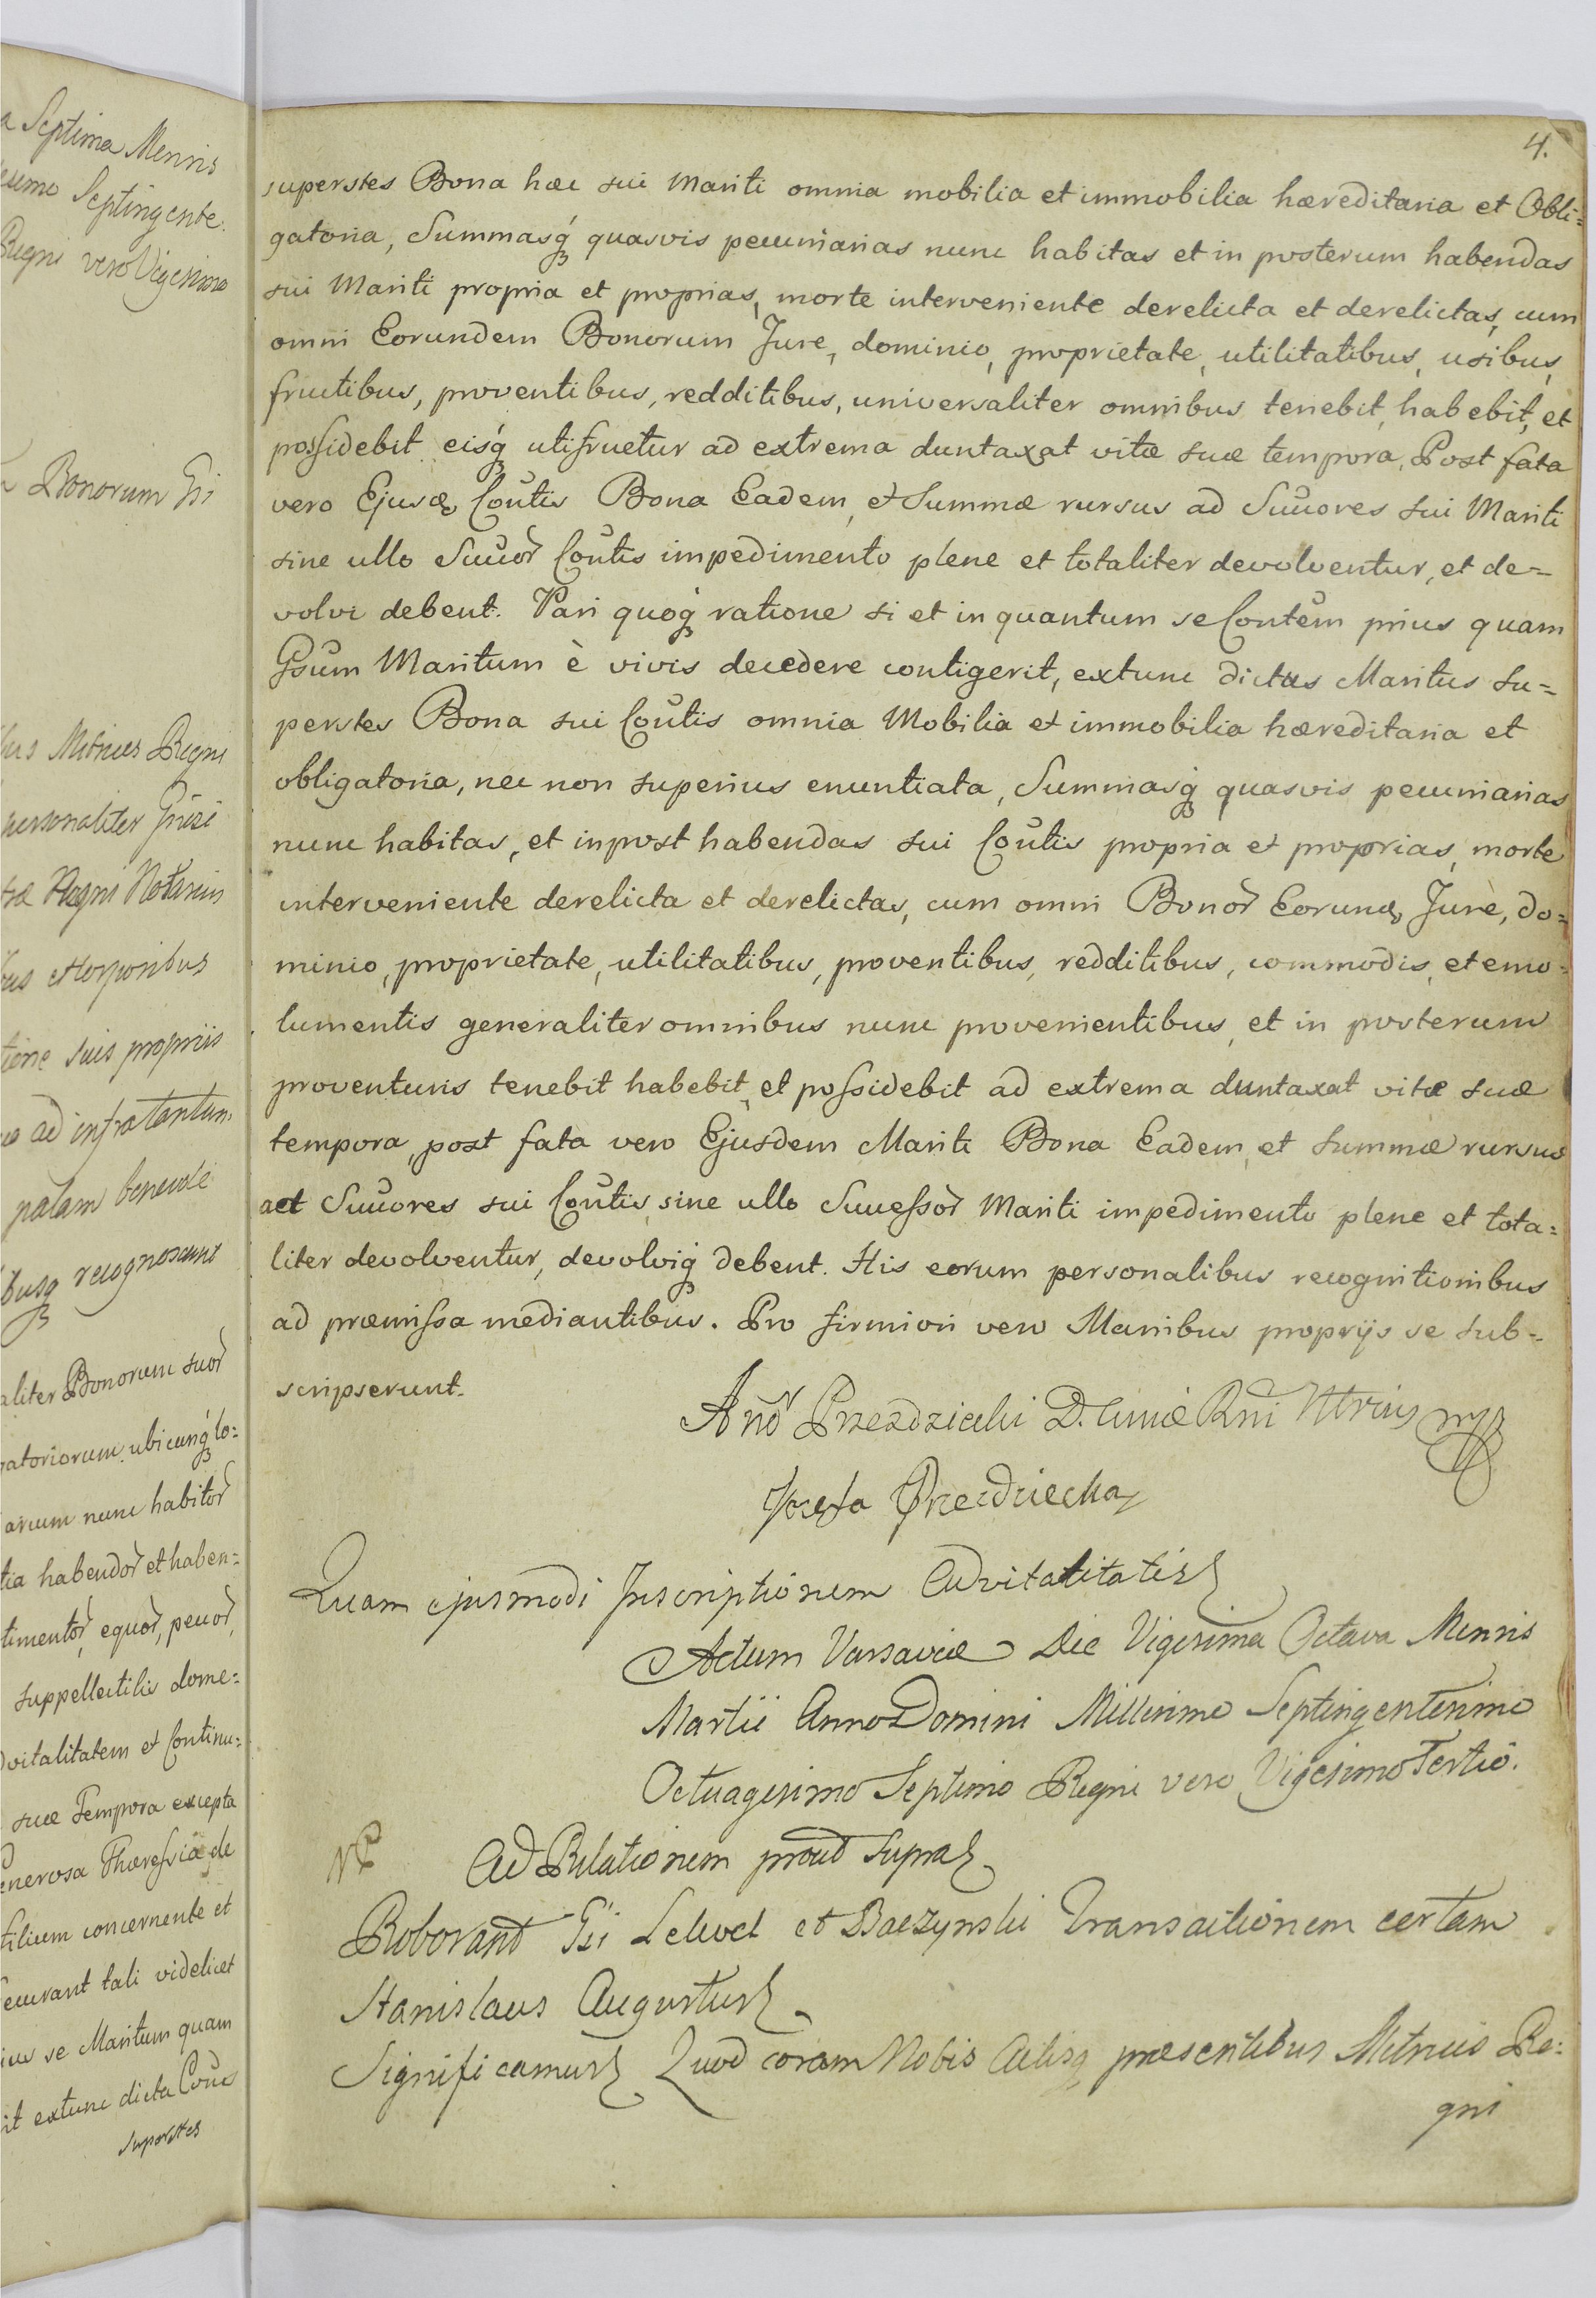 a Septima Mensis
Septingente.
Regni vero Vigesimo
Bonorum Gsi
Mtrices Regni
personaliter
Regni Notarius
et Corporibus
suis propriis
ad infra tantum
palam benevole
recognoscunt
aliter Bonorum suor
ubicunq lo=
arum nunc habitor
habendor et haben=
equor, pecor,
suppellectilis dome=
vitalitatem et Continu=
suæ Tempora excepta
de
concernente et
tali videlicet
se Maritum quam
it extunc dicta Cons
Superstes
4.
superstes Bona hæc sui Mariti omnia mobilia et immobilia hæreditaria et Obli=
gatoria, Summasq quasvis pecuniarias nunc habitas et in posterum habendas
sui Mariti propria et proprias, morte interveniente derelicta et derelictas, cum
omni Eorundem Bonorum Jure, dominio, proprietate, utilitatibus, usibus,
fructibus, proventibus, redditibus, universaliter omnibus tenebit, habebit, et
possidebit eisq utifruetur ad extrema duntaxat vitæ suæ tempora, Post fata
vero Ejusd Contis Bona Eadem, et Summæ rursus ad Succores sui Mariti
sine ullo Succor Contis impedimento plene et totaliter devolventur, et de=
volvi debent. Pari quoq ratione si et in quantum se Contem prius quam
Gsum Maritum è vivis decedere contigerit, extunc dictus Maritus su=
perstes Bona sui Contis omnia Mobilia et immobilia hæreditaria et
obligatoria, nec non superius enuntiata, Summasq quasvis pecuniarias
nunc habitas, et inpost habendas sui Contis propria et proprias, morte
interveniente derelicta et derelictas, cum omni Bonor Eorund Jure, do=
minio, proprietate, utilitatibus, proventibus, redditibus, commodis, et emo=
lumentis generaliter omnibus nunc provenientibus, et in posterum
proventuris tenebit habebit, et possidebit ad extrema duntaxat vitæ suæ
tempora, post fata vero Ejusdem Mariti Bona Eadem, et Summæ rursus
ad Succores sui Contis, sine ullo Successor Mariti impedimento plene et tota=
liter devolventur, devolviq debent. His eorum personalibus recognitionibus
ad præmissa mediantibus. Pro firmiori vero Manibus proprijs se sub=
scripserunt.
And Przezdziecki
Jozefa Przezdziecka
Quam ejusmodi Inscriptionem Advitalitatis
Actum Varsaviæ Die Vigesima Octava Mensis
Martii Anno Domini Millesimo Septingentesimo
Octuagesimo Septimo Regni vero Vigesimo Tertio.
Ad Relationem prout Supra
Roborant Gsi Lelevel et Baczynski Transactionem certam
Stanislaus Augustus
Significamus Quod coram Nobis Actisq præsentibus Mtrices Re=
gni